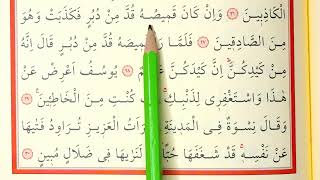 الْكَاذِبِينَ ﴿٢٦﴾ وَاِنْ كَانَ قَمِيصُهُ قُدَّ مِنْ دُبُرٍ فَكَذَبَتْ وَهُوَ
مِنَ الصَّادِقِينَ ﴿٢٧﴾ فَلَمَّا قُدَّ مِنْ دُبُرٍ قَالَ اِنَّهُ
مِنْ كَيْدِكُنَّ اِنَّ كَيْدَكُنَّ ﴿٢٨﴾ يُوسُفُ اَعْرِضْ عَنْ
هٰذَا وَاسْتَغْفِرِى لِذَنْبِكِ كُنْتِ مِنَ الْخَاطِئِينَ ﴿٢٩﴾
وَقَالَ نِسْوَةٌ فِى الْمَدِينَةِ الْعَزِيزِ تُرَاوِدُ فَتٰيهَا
عَنْ نَفْسِهِ قَدْ شَغَفَهَا حُبًّا لَنَرٰيهَا فِى ضَلَالٍ مُبِينٍ ﴿٣٠﴾